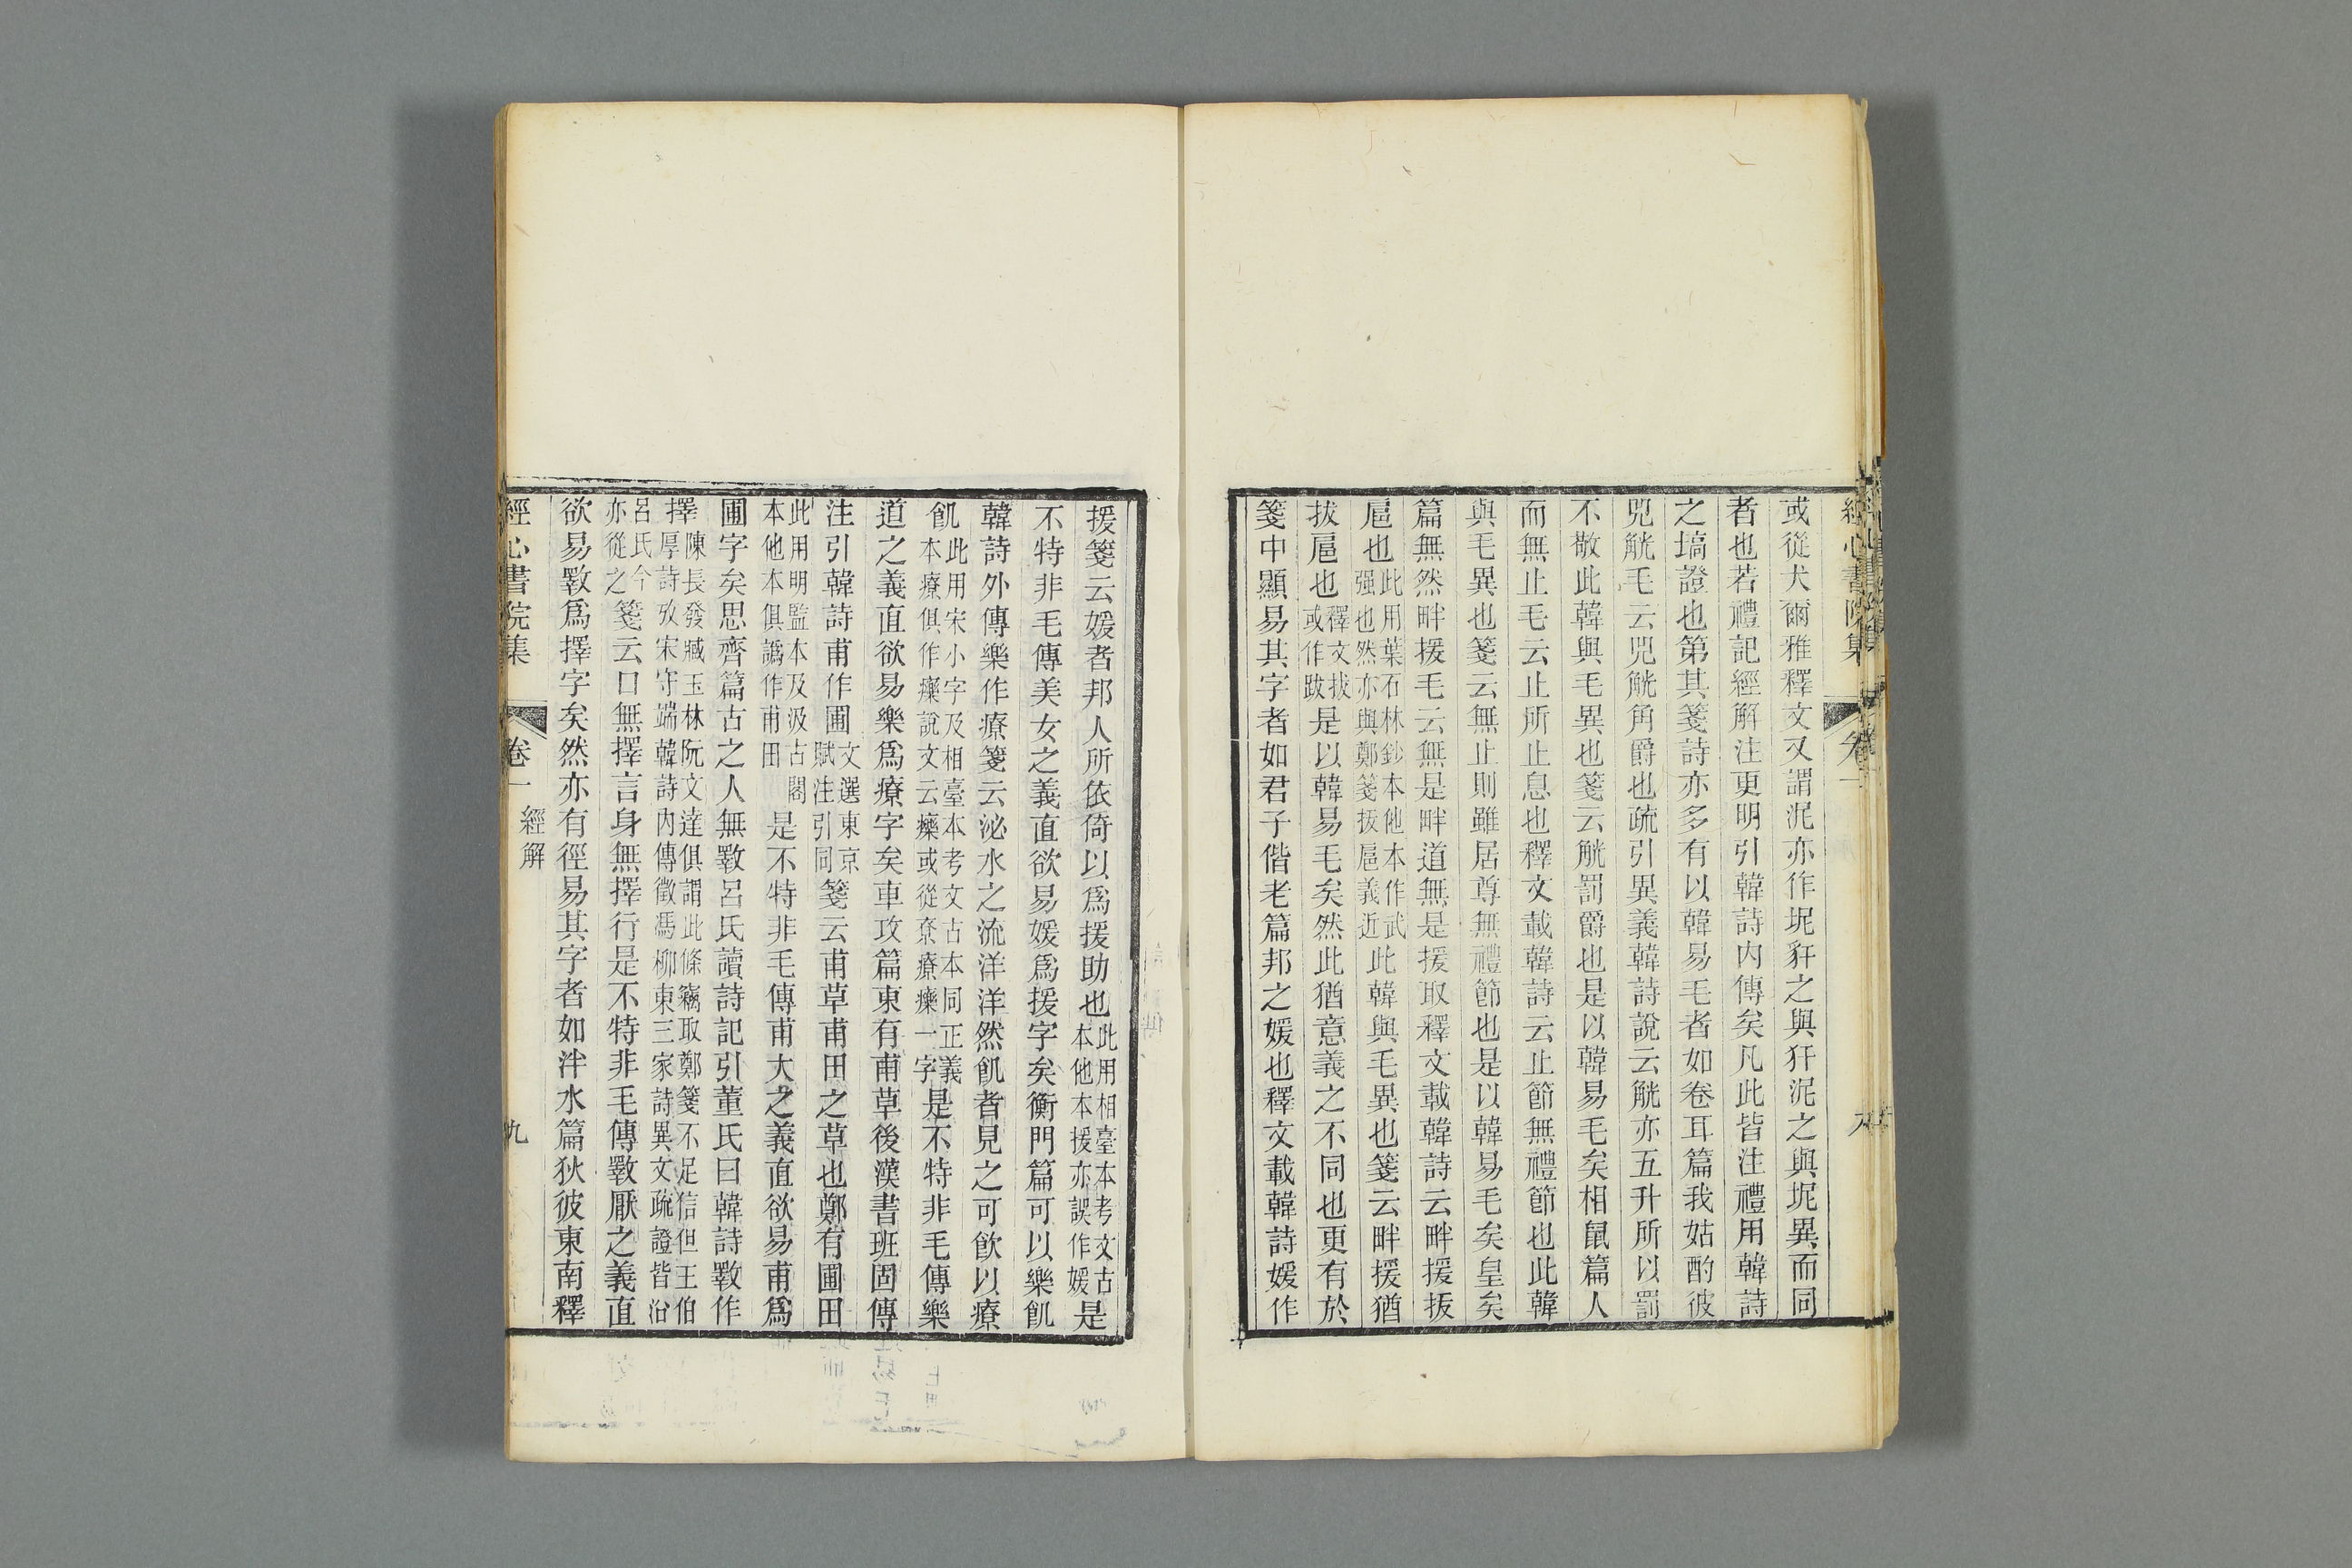 經心書院集 卷一
或從犬爾雅釋文又謂泥亦作坭豻之與犴泥之與坭異而同
者也若禮記經解注更明引韓詩內傳矣凡此皆注禮用韓詩
之塙證也第其箋詩亦多有以韓易毛者如卷耳篇我姑酌彼
兕觥毛云兕觥角爵也疏引異義韓詩說云觥亦五升所以罰
不敬此韓與毛異也箋云觥罰爵也是以韓易毛矣相鼠篇人
而無止毛云止所止息也釋文載韓詩云止節無禮節也此韓
與毛異也箋云無止則雖居尊無禮節也是以韓易毛矣皇矣
篇無然畔援毛云無是畔道無是援取釋文載韓詩云畔援扳
扈也此用葉石林鈔本他本作武强也然亦與鄭箋扳扈義近此韓與毛異也箋云畔援猶
拔扈也釋文拔或作跋是以韓易毛矣然此猶意義之不同也更有於
箋中顯易其字者如君子偕老篇邦之媛也釋文載韓詩媛作
援箋云媛者邦人所依倚以爲援助也此用相臺本考文古本他本援亦誤作媛是
不特非毛傳美女之義直欲易媛爲援字矣衡門篇可以樂飢
韓詩外傳樂作療箋云泌水之流洋洋然飢者見之可飮以療
飢此用宋小字及相臺本考文古本同正義本療俱作㿋說文云㿋或從尞療㿋一字是不特非毛傳樂
道之義直欲易樂爲療字矣車攻篇東有甫草後漢書班固傳
注引韓詩甫作圃文選東京賦注引同箋云甫草甫田之草也鄭有圃田
此用明監本及汲古閣本他本俱譌作甫田是不特非毛傳甫大之義直欲易甫爲
圃字矣思齊篇古之人無斁呂氏讀詩記引董氏曰韓詩斁作
擇陳長發臧玉林阮文達俱謂此條竊取鄭箋不足信但王伯厚詩攷宋守端韓詩內傳徵馮柳東三家詩異文疏證皆沿
呂氏今亦從之箋云口無擇言身無擇行是不特非毛傳斁厭之義直
欲易斁爲擇字矣然亦有徑易其字者如泮水篇狄彼東南釋
經心書院集 卷一 經解 九